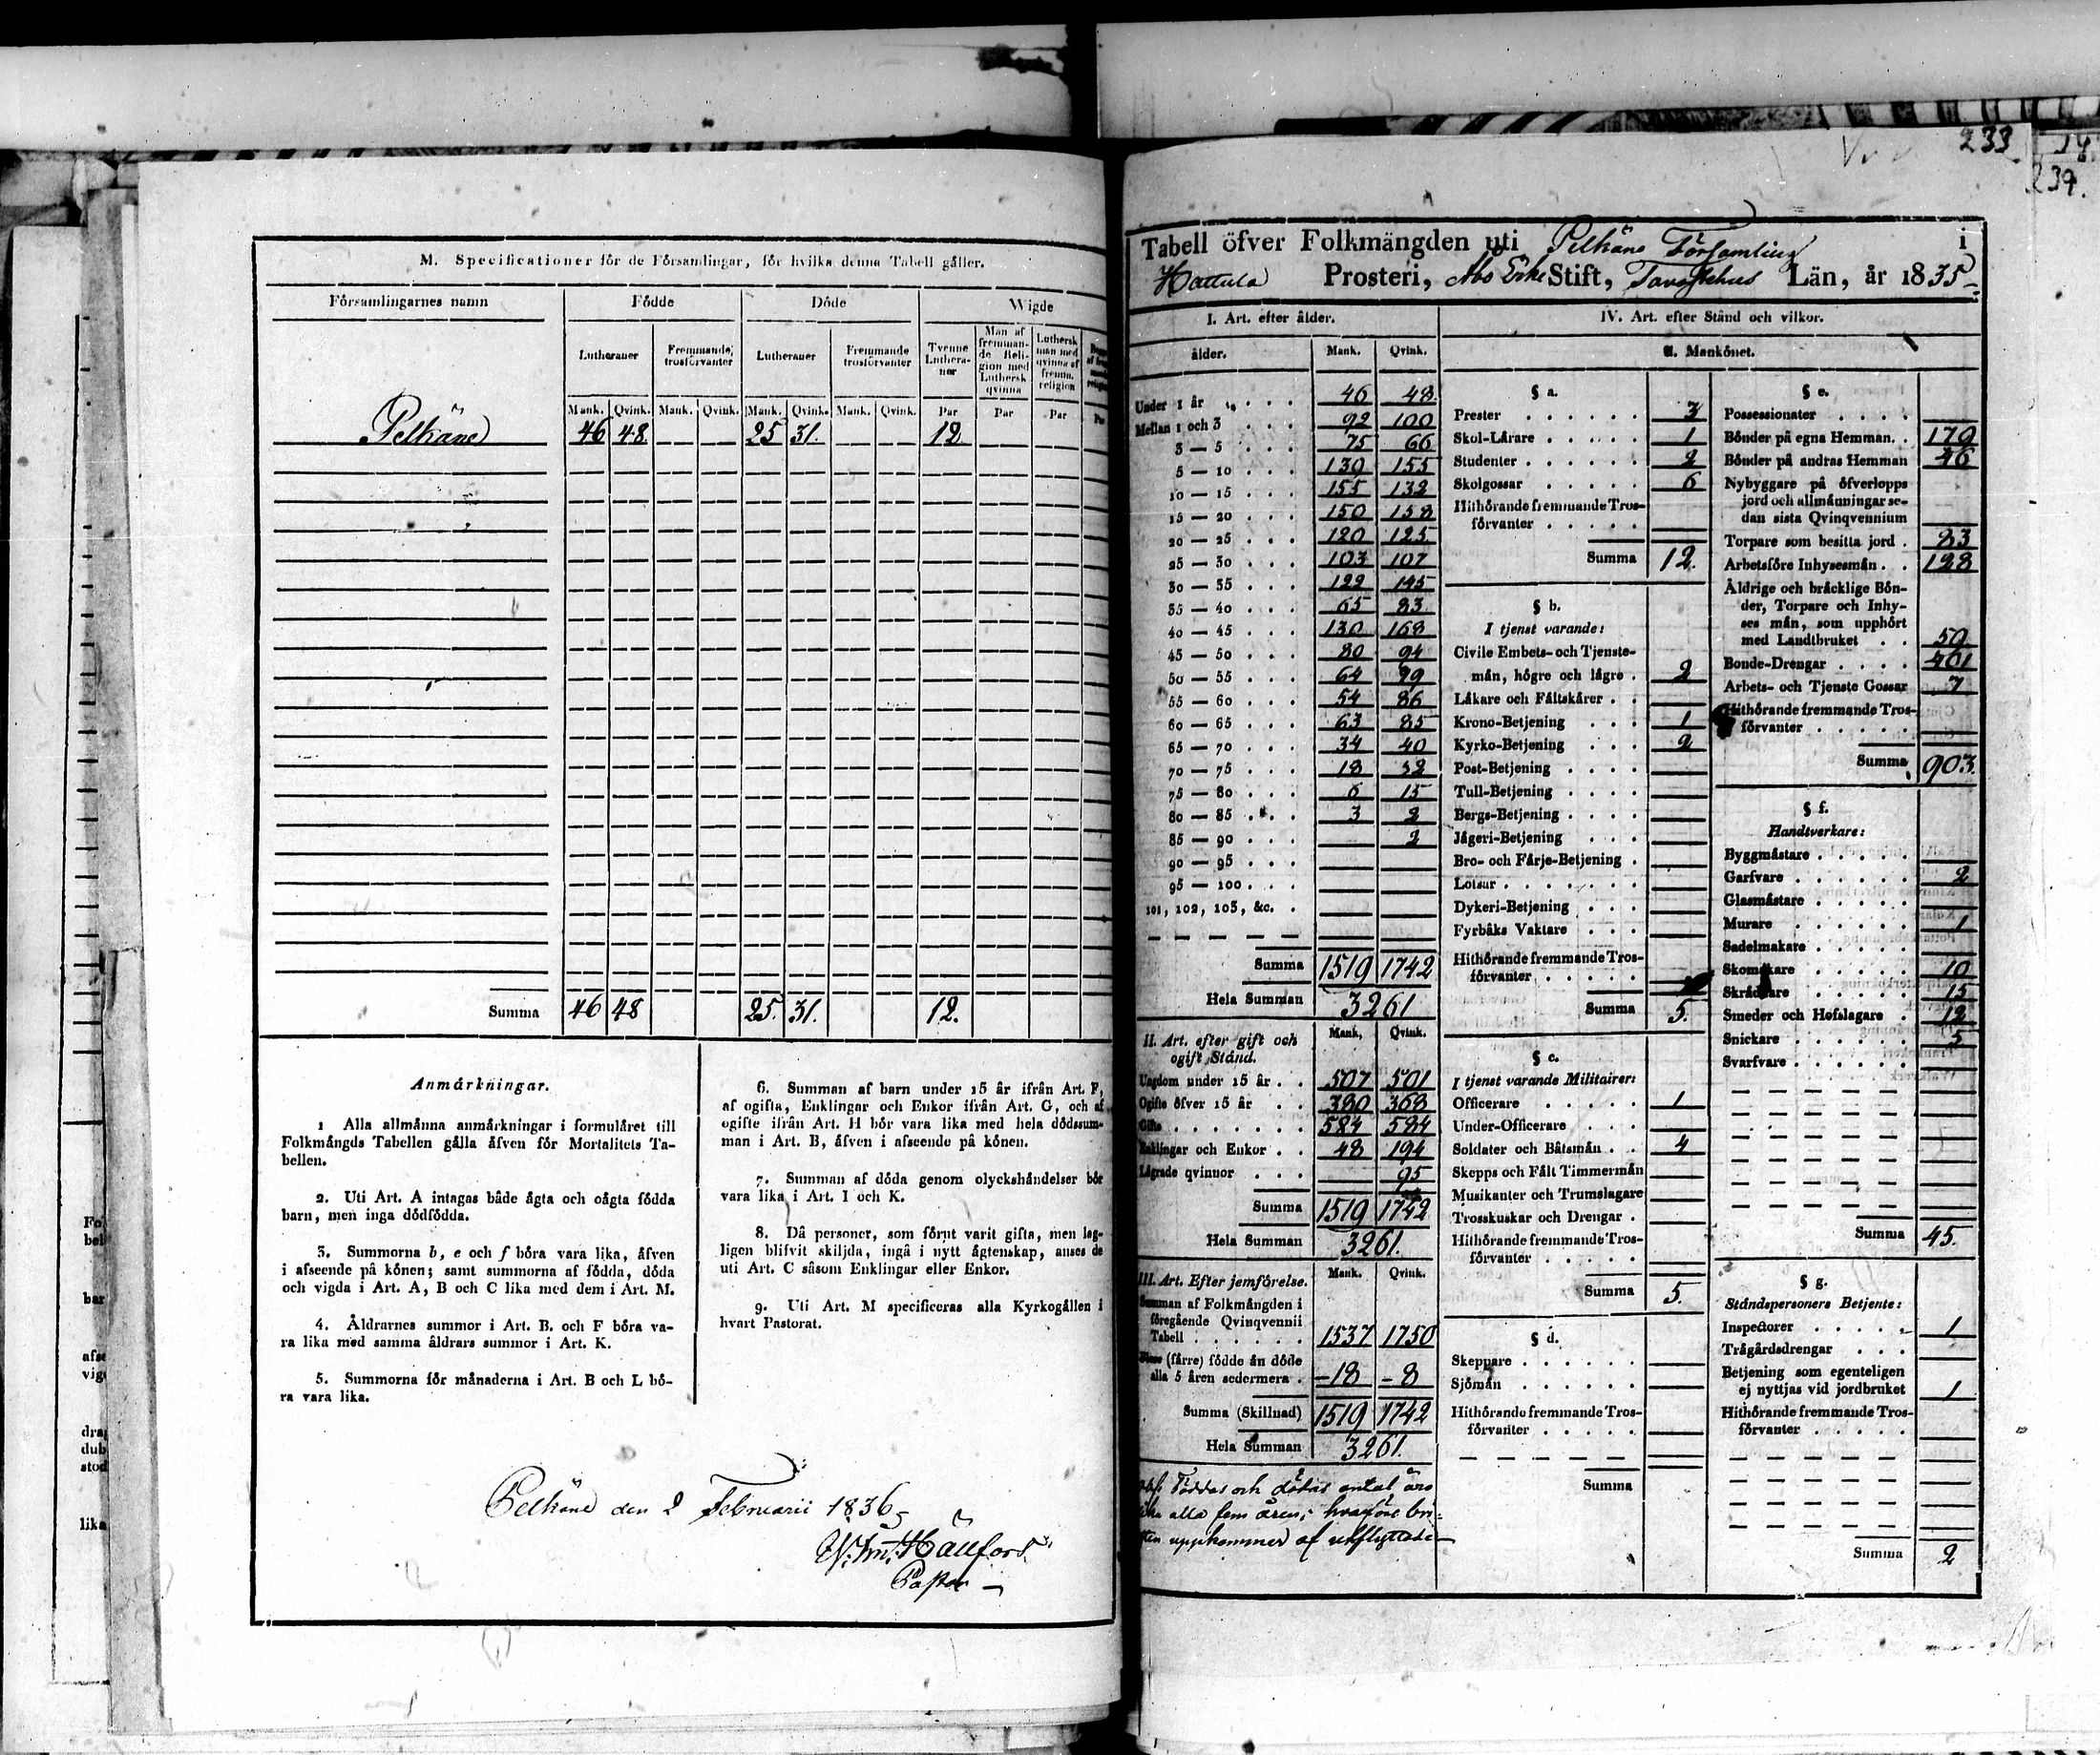 M. Specificationer för de Församlingar, för hvilka denna Tabell gäller.
Församlingarnes namn Födde Döde Wigde
Lutheraner Fremmande trosförvanter Lutheraner Fremmande trosförvanter Tvenne Lutheraner Man af fremmande Religion med Luthersk qvinna Luthersk man med qvinna af fremm. religion
Mank. Qvink. Mank. Qvink. Mank. Qvink. Mank. Qvink. Par Par Par
Pelkäne 46 48 25 31. 12
Summa 46 48 25. 31. 12.
Anmärkningar.
1 Alla allmänna anmärkningar i formuläret till
Folkmängds Tabellen gälla äfven för Mortalitets Ta-
bellen.
2. Uti Art. A intagas både ägta och oägta födda
barn, men inga dödfödda.
3. Summorna b, e och f böra vara lika, äfven
i afseende på könen; samt summorna af födda, döda
och vigda i Art. A, B och C lika med dem i Art. M.
4. Åldrarnes summor i Art. B. och F böra va-
ra lika med samma åldrars summor i Art. K.
5. Summorna för månaderna i Art. B och L bö-
ra vara lika.
6. Summan af barn under 15 år ifrån Art. F,
af ogifta, Enklingar och Enkor ifrån Art. G, och af
ogifte ifrån Art. H bör vara lika med hela dödssum-
man i Art. B, äfven i afseende på könen.
7. Summan af döda genom olyckshändelser bör
vara lika i Art. I och K.
8. Då personer, som förut varit gifta, men lag-
ligen blifvit skiljda, ingå i nytt ägtenskap, anses de
uti Art. C såsom Enklingar eller Enkor.
9. Uti Art. M specificeras alla Kyrkogällen i
hvart Pastorat.
Pelkäne den 2 Februarii 1836
Pastor
233
234.
1
Tabell öfver Folkmängden uti Pelkäne Församling
Hattula Prosteri, Åbo Erke Stift, Tavastehus Län, år 1835
I. Art. efter ålder.
ålder. Mank. Qvink.
Under 1 år 46 48
Mellan 1 och 3 92 100
3 — 5 75 66
5 — 10 139 155
10 — 15 155 132
15 — 20 150 158
20 — 25 120 125
25 — 30 103 107
30 — 35 122 145
35 — 40 65 83
40 — 45 130 168
45 — 50 80 94
50 — 55 64 99
55 — 60 54 86
60 — 65 63 85
65 — 70 34 40
70 — 75 18 32
75 — 80 6 15
80 — 85 3 2
85 — 90 2
90 — 95
95 — 100
101, 102, 103, &c.
Summa 1519 1742
Hela Summan 3261
II. Art. efter gift och ogift Stånd. Mank. Qvink.
Ungdom under 15 år 507 501
Ogifte öfver 15 år 380 368
Gifte 584 584
Enklingar och Enkor 48 194
Lägrade qvinnor 95
Summa 1519 1742
Hela Summan 3261.
III. Art. Efter jemförelse. Mank. Qvink.
Summan af Folkmängden i
föregående Qvinqvennii
Tabell 1537 1750
(färre) födde än döde
alla 5 åren sedermera —18 —8
Summa (Skillnad) 1519 1742
Hela Summan 3261.
Föddas och dödas antal äro
lika alla fem åren; hvarföre bri-
sten uppkommer af utflyttade
IV. Art. efter Stånd och vilkor.
Mankönet.
§ a.
Prester 3
Skol-Lärare 1
Studenter 2
Skolgossar 6
Hithörande fremmande Tros-
förvanter
Summa 12.
§ b.
I tjenst varande:
Civile Embets- och Tjenste-
män, högre och lägre 2
Läkare och Fältskärer
Krono-Betjening 1
Kyrko-Betjening 2
Post-Betjening
Tull-Betjening
Bergs-Betjening
Jägeri-Betjening
Bro- och Färje-Betjening
Lotsar
Dykeri-Betjening
Fyrbåks Vaktare
Hithörande fremmande Tros-
förvanter
Summa 5.
§ c.
I tjenst varande Militairer:
Officerare 1
Under-Officerare
Soldater och Båtsmän 4
Skepps och Fält Timmermän
Musikanter och Trumslagare
Trosskuskar och Drengar
Hithörande fremmande Tros-
förvanter
Summa 5.
§ d.
Skeppare
Sjömän
Hithörande fremmande Tros-
förvanter
Summa
§ e.
Possessionater
Bönder på egna Hemman 179
Bönder på andras Hemman 46
Nybyggare på öfverlopps
jord och allmänningar se-
dan sista Qvinqvennium
Torpare som besitta jord 83
Arbetsföre Inhysesmän 128
Åldrige och bräcklige Bön-
der, Torpare och Inhy-
ses män, som upphört
med Landtbruket 59
Bonde-Drengar 401
Arbets- och Tjenste Gossar 7
Hithörande fremmande Tros-
förvanter
Summa 903.
§ f.
Handtverkare:
Byggmästare
Garfvare 2
Glasmästare
Murare 1
Sadelmakare
Skomakare 10
Skräddare 15
Smeder och Hofslagare 12
Snickare 5
Svarfvare
Summa 45.
§ g.
Ståndspersoners Betjente:
Inspectorer 1
Trägårdsdrengar
Betjening som egenteligen
ej nyttjas vid jordbruket 1
Hithörande fremmande Tros-
förvanter
Summa 2